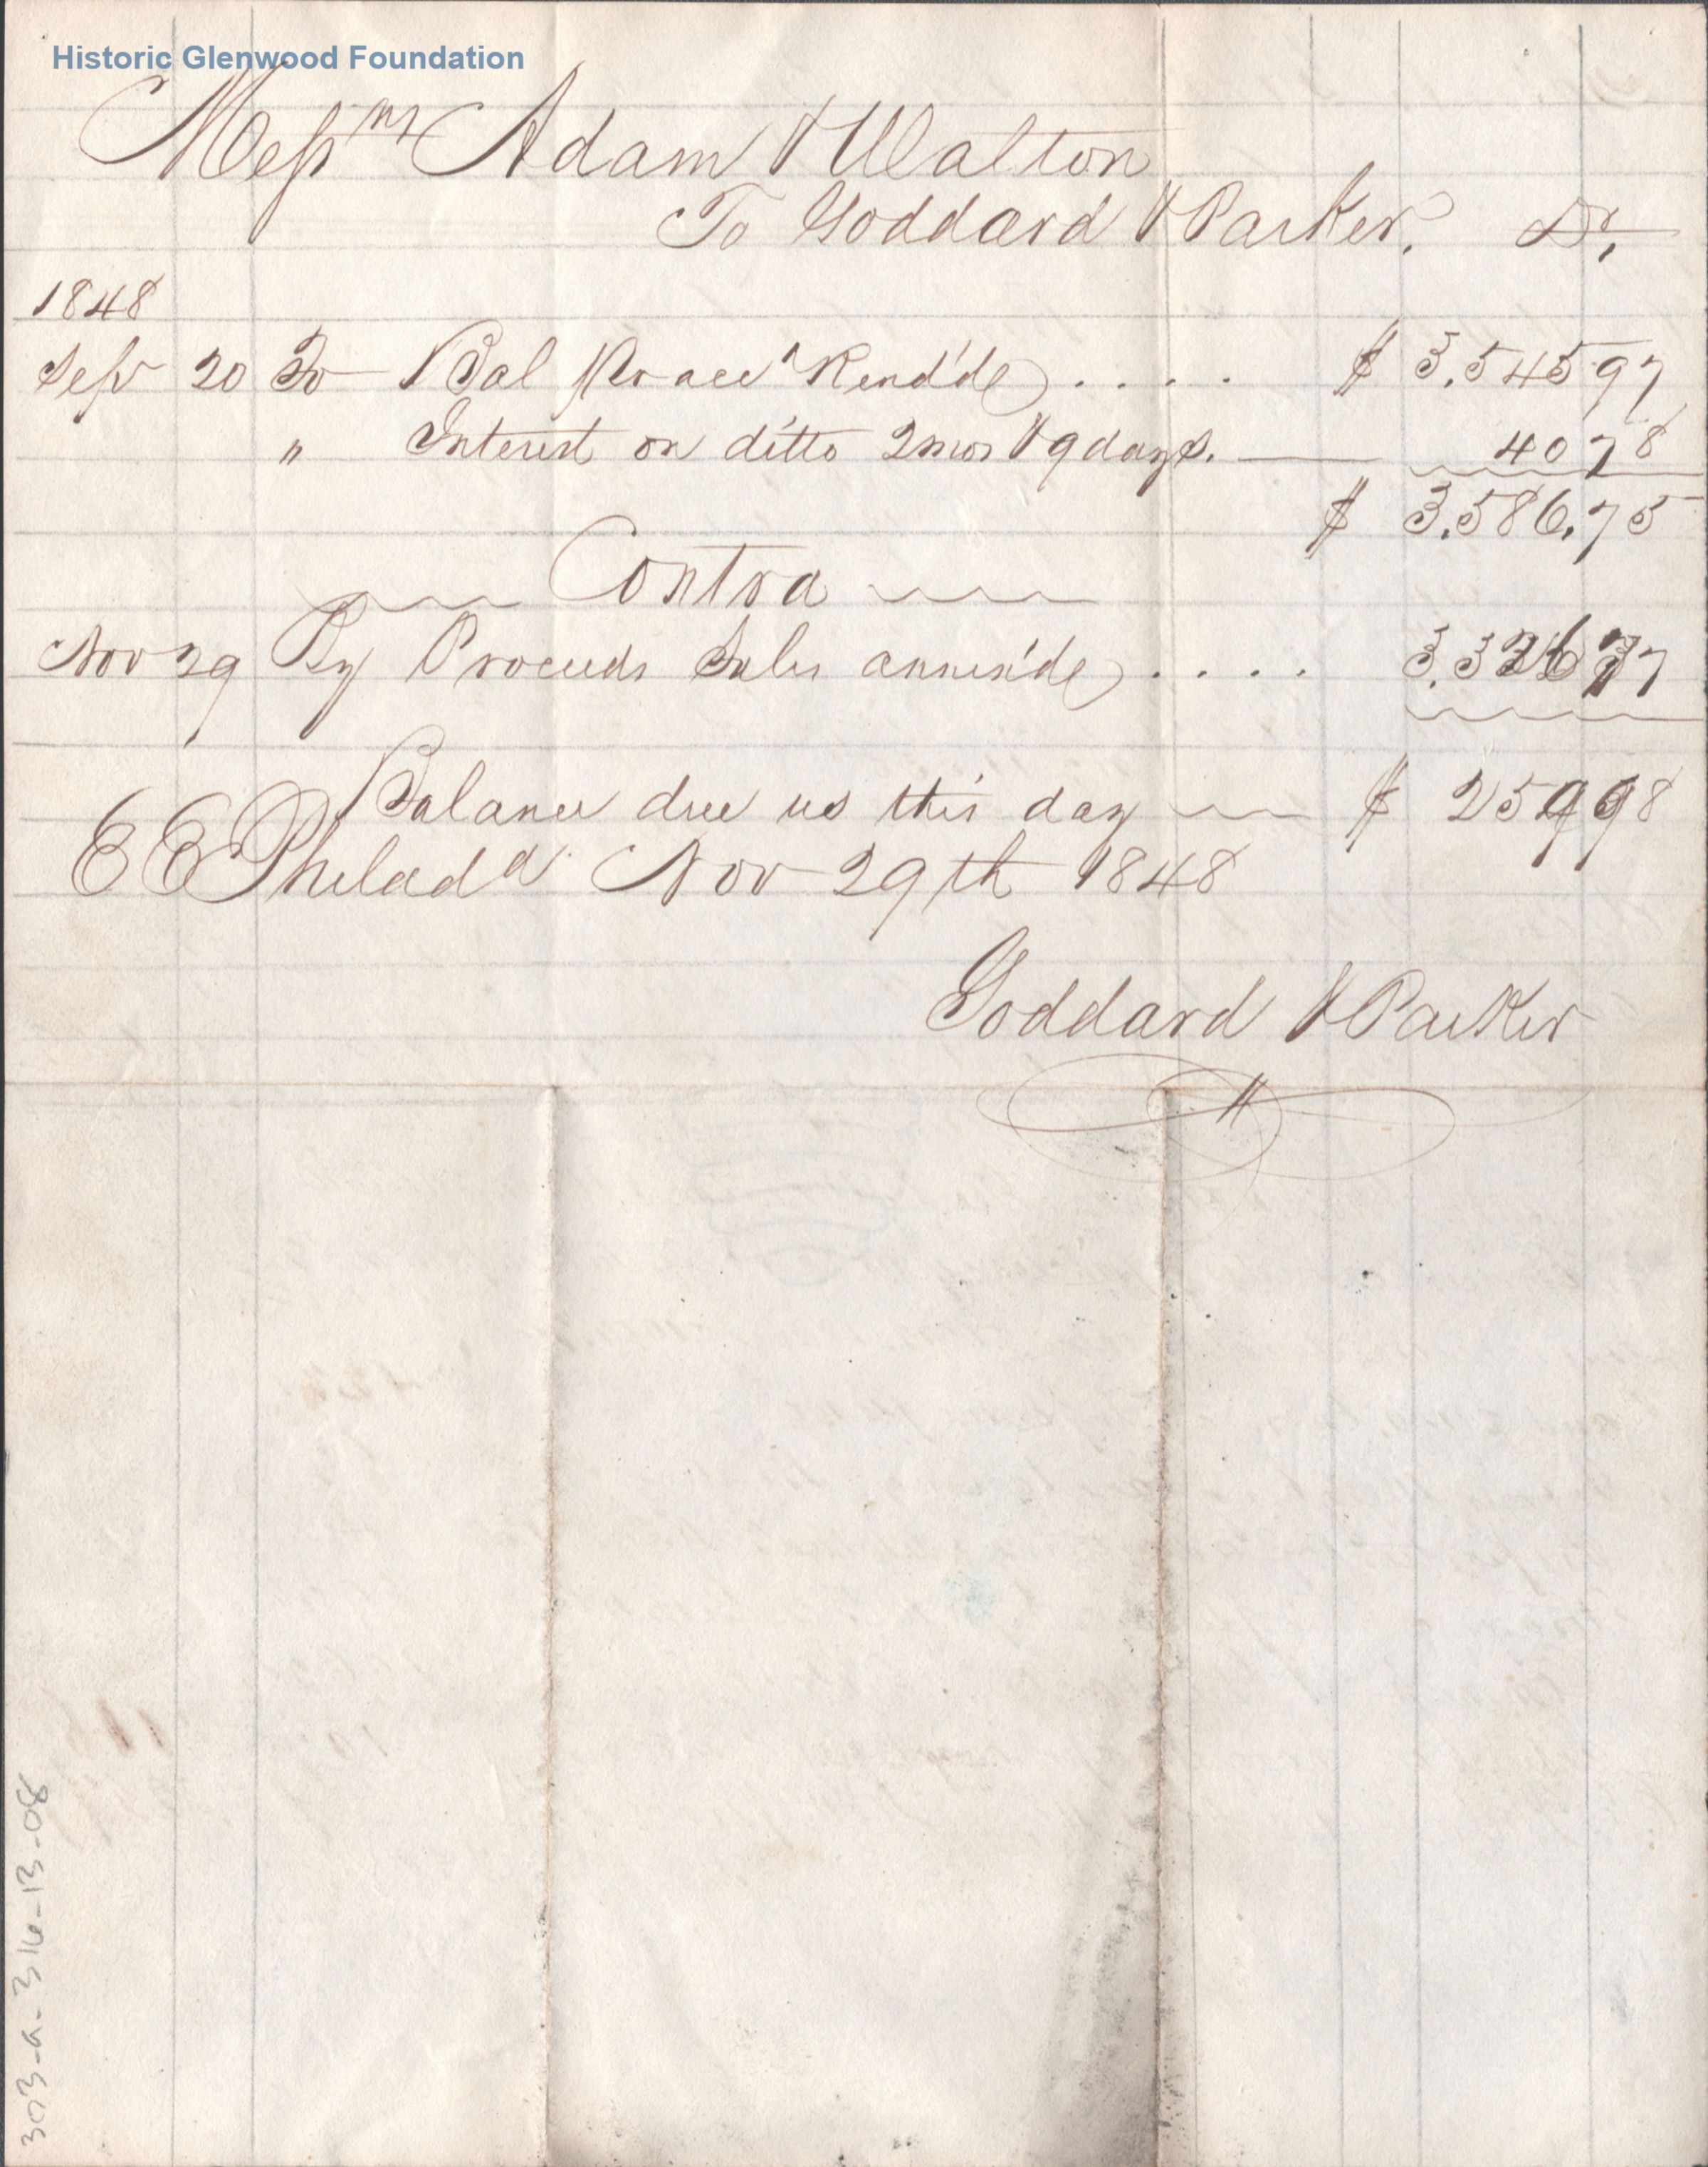 Historic Glenwood Foundation
Messrs Adam & Walton
To Goddard & Parker. Dr.
1848
Sep 20 To Bal Per acct Rend'de .... $ 3.545 97
" Interest on ditto 2 mos & 9 days. 40 78
$ 3.586.75
Contra
Nov 29 By Proceeds Sales annex'de .... 3.326 77
Balance due us this day $ 259 98
E E Philada Nov 29th 1848
Goddard & Parker
303-a-316-13-08